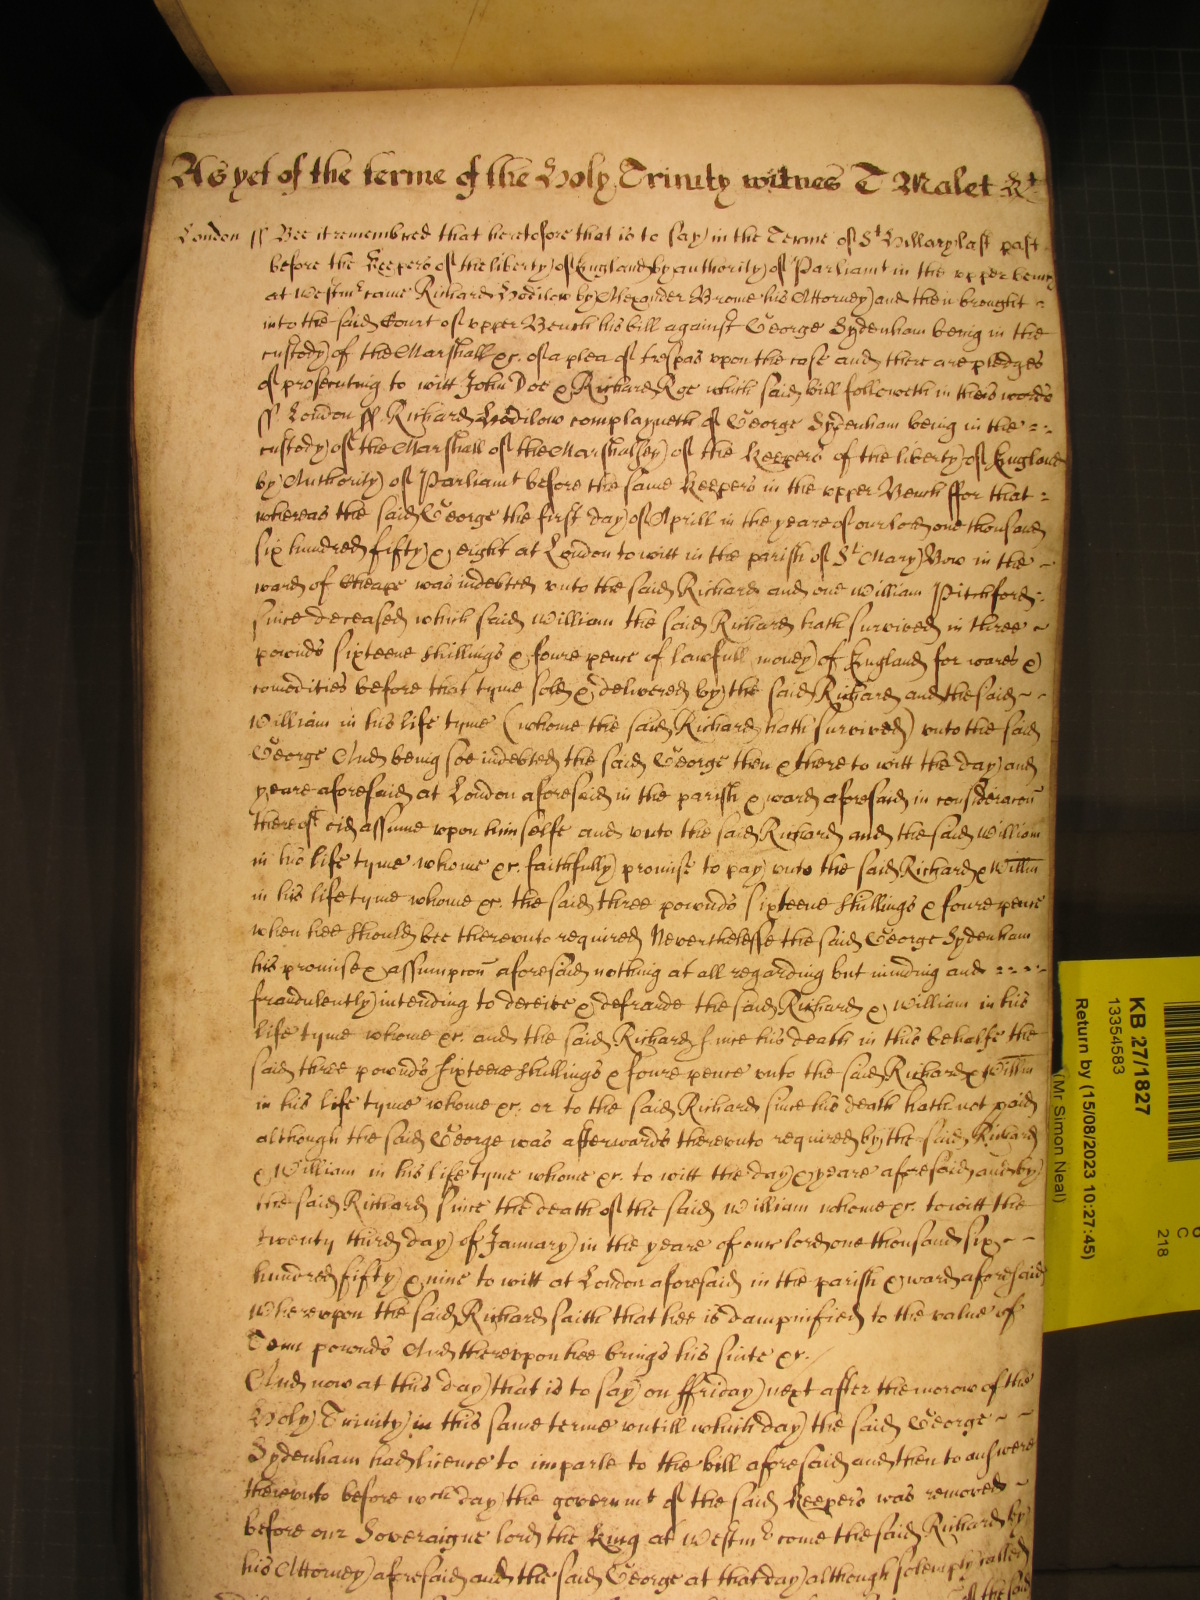 As yet of the terme of the Holy Trinity witnes T Malet &c
London ss Bee it remembred that heretofore that is to say in the Terme of St Hillary last past
before the Keepers of the liberty of England by authority of Parliamt in the upper bench
at Westmr came Richard Hodilow by Alexander Brome his Attorney and then brought
into the said Court of upper Bench his bill against George Sydenham being in the
custody of the Marshall &c. of a plea of trespas upon the case and there are pledges
of prosecuting to witt John Doe & Richard Roe which said bill followeth in theis words
ss London ss Richard Hodilow complayneth of George Sydenham being in the
custody of the Marshall of the Marshalsey of the Keepers of the liberty of England
by Authority of Parliamt before the same Keepers in the upper Bench ffor that
whereas the said George the first day of Aprill in the yeare of our lord one thousand
six hundred fifty & eight at London to witt in the parish of St Mary Bow in the
ward of Cheape was indebted unto the said Richard and one William Pitchford
since deceased which said William the said Richard hath survived in three
pownds sixteene shillings & foure pence of lawfull money of England for wares &
comodities before that tyme sold & delivered by the said Richard and the said
William in his life tyme (whome the said Richard hath survived) unto the said
George And being soe indebted the said George then & there to witt the day and
yeare aforesaid at London aforesaid in the parish & ward aforesaid in consideracon
thereof did assume upon himselfe and unto the said Richard and the said William
in his life tyme whome &c. faithfully promise to pay unto the said Richard & Willm
in his life tyme whome &c. the said three pownds sixteene shillings & foure pence
when hee should bee therewnto required Neverthelesse the said George Sydenham
his promise & assumpcon aforesaid nothing at all regarding but minding and
fraudulently intending to deceive & defraude the said Richard & William in his
life tyme whome &c. and the said Richard since his death in this behalfe the
said three pownds sixteene shillings & foure pence unto the said Richard & Willm
in his life tyme whome &c. or to the said Richard since his death hath not paid
although the said George was afterwards therewnto required by the said Richard
& William in his life tyme whome &c. to witt the day & yeare aforesaid and by
the said Richard since the death of the said William whome &c. to witt the
twenty third day of January in the yeare of our lord one thousand six
hundred fifty & nine to witt at London aforesaid in the parish & ward aforesaid
Wherewpon the said Richard saith that hee is dampnified to the value of
Tenn pownds And therewpon hee brings his suite &c.
And now at this day that is to say on ffriday next after the morow of the
Holy Trinity in this same terme untill which day the said George
Sydenham had licence to imparle to the bill aforesaid and then to answere
therewnto before wch day the governmt of the said Keepers was removed
before our Soveraigne lord the King at Westmr come the said Richard by
his Attorney aforesaid and the said George at that day although solemply called
KB 27/1827
13354583
Return by (15/08/2023 10:27:45)
(Mr Simon Neal)
218